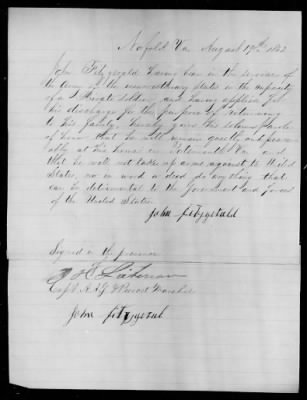 Norfolk Va August 19th 1862
John Fitzgerald having been in the service of
the army of the insurrectionary states in the capacity
of a Private Soldier and having applied for
his discharge for the purpose of returning
to his family hereby gives his solemn Parole
of honor that he will remain quietly and peace
ably at his home in Portsmouth Va and
that he will not take up arms against the United
States, nor in word or deed do anything that
can be detrimental to the Government and forces
of the United States.
John fitzgerald
Signed in the presence
Capt. A.A.G. & Provost Marshal
John fitzgerald